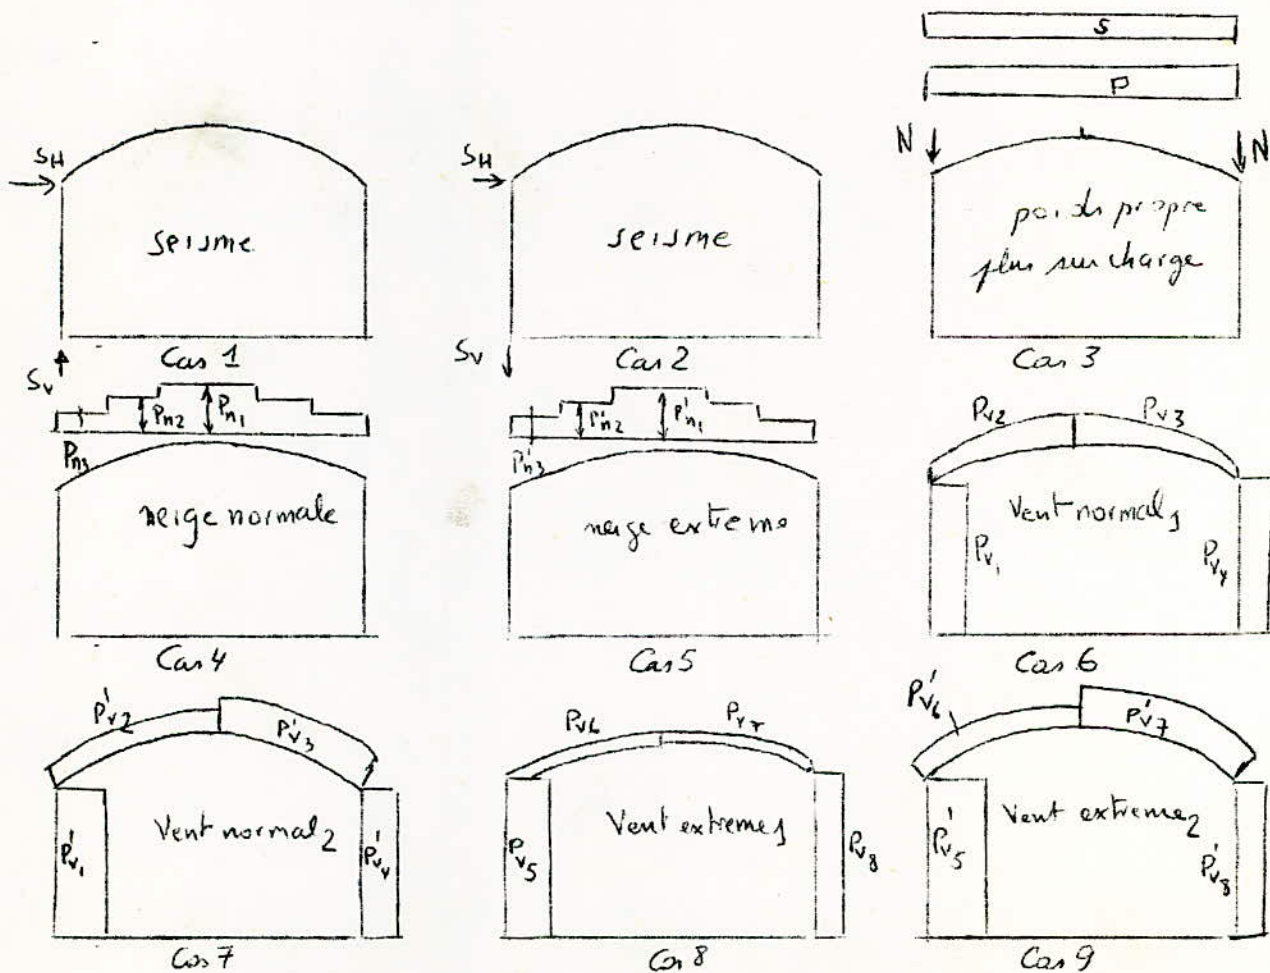 S
P
N
N
S_H
seisme
S_V
Cas 1
S_H
seisme
S_V
Cas 2
poids propre
plus surcharge
Cas 3
P_n3
P_n2
P_n1
neige normale
Cas 4
P'_n3
P'_n2
P'_n1
neige extreme
Cas 5
P_v2
P_v3
Vent normal_1
P_v1
P_v4
Cas 6
P'_v2
P'_v3
Vent normal_2
P'_v1
P'_v4
Cas 7
P_v6
P_v7
Vent extreme_1
P_v5
P_v8
Cas 8
P'_v6
P'_v7
Vent extreme_2
P'_v5
P'_v8
Cas 9